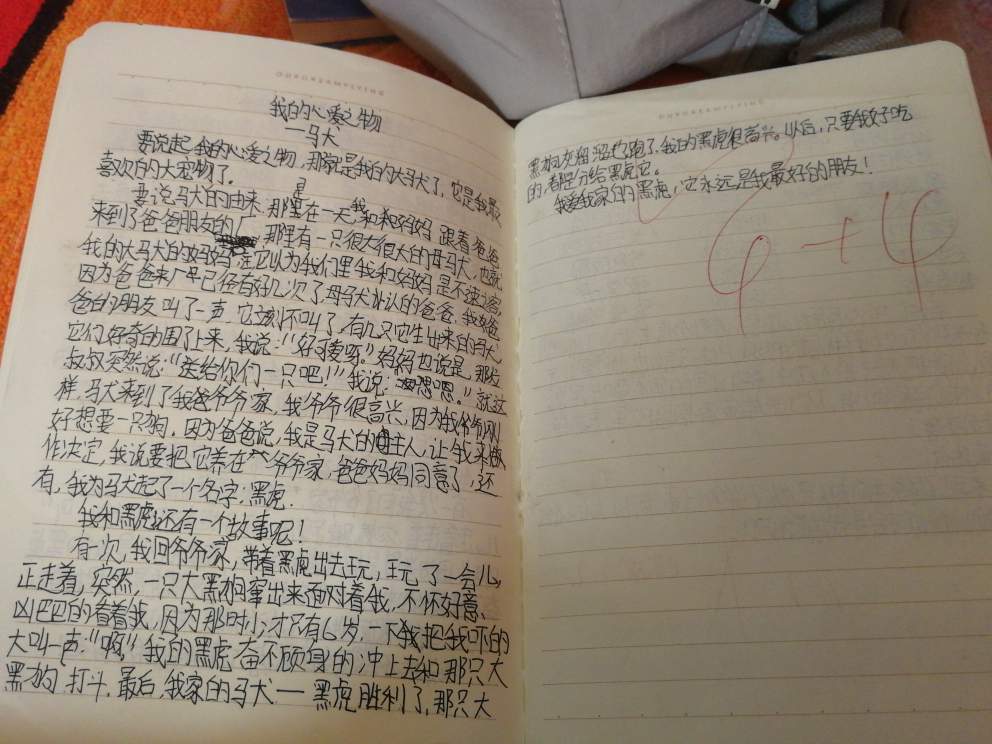 OUROREAMFLYING
我的心爱之物
—马犬
要说起我的心爱之物,那就是我的大马犬了,它是我最
喜欢的大宠物了。
要说马犬的由来,那是在一天,我和妈妈跟着爸爸
来到了爸爸朋友的厂,那里有一只很大很大的母马犬,也就
我的大马犬的妈妈,它认为我们里我和妈妈是不速之客,
因为爸爸来厂早已经有好几次了母马犬认的爸爸,我爸
爸的朋友叫了一声,它立刻不叫了,有几只它生出来的马犬,
它们好奇的围了上来,我说:“好可爱呀。”妈妈也说是,那位
叔叔突然说:“送给你们一只吧!”我说:“嗯嗯。”就这
样,马犬来到了我爸爷爷家,我爷爷很高兴,因为我爷爷刚
好想要一只狗,因为爸爸说,我是马犬的主人,让我来做
作决定,我说要把它养在爷爷家,爸爸妈妈同意了,还
有,我为马犬起了一个名字:黑虎.
我和黑虎还有一个故事呢!
有一次,我回爷爷家,带着黑虎出去玩,玩了一会儿,
正走着,突然,一只大黑狗窜出来面对着我,不怀好意、
凶巴巴的看着我,因为那时小,才只有6岁,一下我把我吓的
大叫一声:“啊”我的黑虎奋不顾身的冲上去和那只大
黑狗打斗,最后,我家的马犬—黑虎胜利了,那只大
OUROREAMFLYING
黑狗灰溜溜地跑了,我的黑虎很高兴。以后,只要我好吃
的,都是分给黑虎它。
我爱我家的黑虎,它永远是我最好的朋友!
4+4